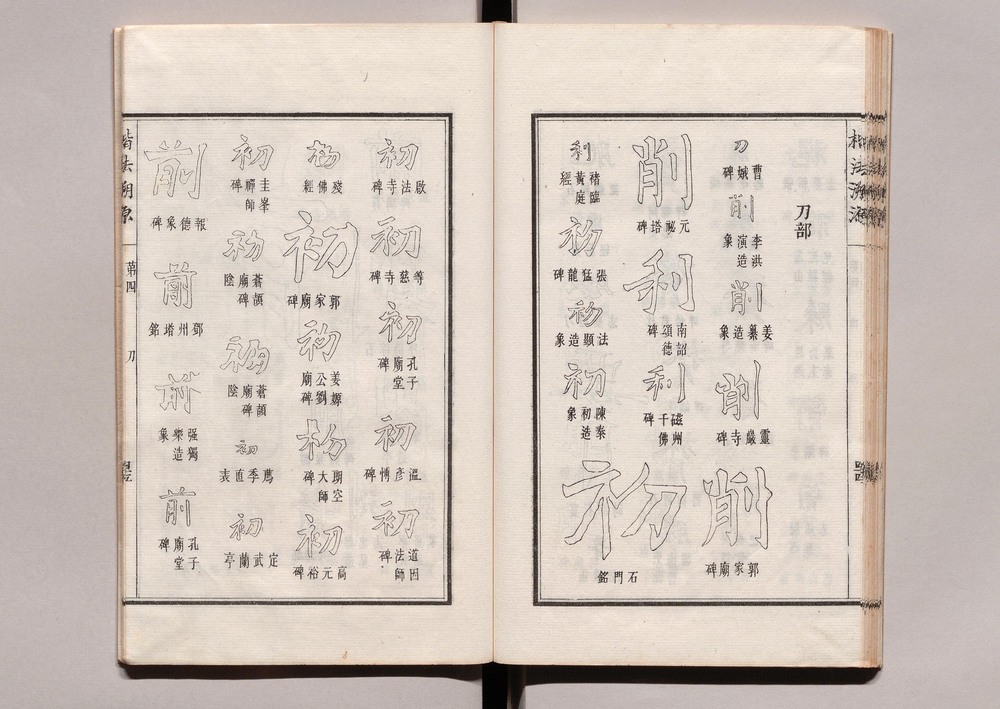 刀部
刀
曹娥碑
削
李洪演造象
削
姜纂造象
削
靈巖寺碑
削
郭家廟碑
削
元祕塔碑
利
南詔德頌碑
利
磁州千佛碑
利
褚臨黃庭經
初
張猛龍碑
初
法顯造象
初
陳泰初造象
初
石門銘
初
啟法寺碑
初
等慈寺碑
初
孔子廟堂碑
初
溫彥博碑
初
道因法師碑
初
殘佛經
初
郭家廟碑
初
姜嫄公劉廟碑
初
朗空大師碑
初
高元裕碑
初
圭峯禪師碑
初
蒼頡廟碑陰
初
蒼頡廟碑陰
初
薦季直表
初
定武蘭亭
前
報德象碑
前
鄧州塔銘
前
强獨樂造象
前
孔子廟堂碑
楷法溯原
第四
刀